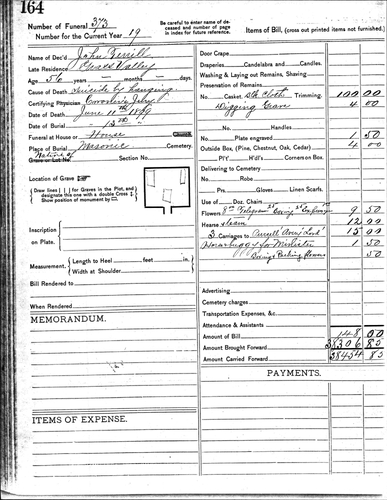 164
Number of Funeral 313
Number for the Current Year 19
Be careful to enter name of de-
ceased and number of page
in index for future reference.
Items of Bill, (cross out printed items not furnished.)
Name of Dec'd John
Late Residence Valley
Age 56 years - months - days.
Cause of Death Suicide by Hanging
Certifying Physician Coroner's Jury
Date of Death June 11th 1899
Date of Burial 13th
Funeral at House or House
Place of Burial Masonic Cemetery.
Nature of
Grave or Lot No. Section No.
Location of Grave
Draw lines for Graves in the Plot, and
designate this one with a double Cross
Show position of monument by
Inscription
on Plate.
Measurement. Length to Heel feet in.
Width at Shoulder
Bill Rendered to
When Rendered
MEMORANDUM.
ITEMS OF EXPENSE.
Door Crape
Draperies Candelabra and Candles.
Washing & Laying out Remains, Shaving
Preservation of Remains
No. Casket, Blk Cloth Trimming. 100 00
Digging Grave 4 00
No. Handles
Plate engraved 1 50
Outside Box, (Pine, Chestnut, Oak, Cedar) 4 00
Pl't H'dl's Corners on Box.
Delivering to Cemetery
No. Robe
Prs. Gloves Linen Scarfs.
Use of Doz. Chairs
Flowers 9 50
Hearse team 12 00
3 Carriages to 15 00
Horse buggy for Minister 1 50
Packing flowers 50
Advertising
Cemetery charges
Transportation Expenses, &c.
Attendance & Assistants
Amount of Bill 148 00
Amount Brought Forward 38306 85
Amount Carried Forward 38454 85
PAYMENTS.